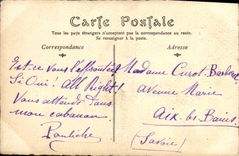 Carte Postale
Tous les pays étrangers n'acceptent pas la correspondance
au recto. Se renseigner à la poste.
Correspondance
Adresse
Est-ce vous l'effrontée?
Si Oui! All right!
Vous attend dans
mon cabanon
Madame Curot
Avenue Marie
Aix les Bains
(Savoie)